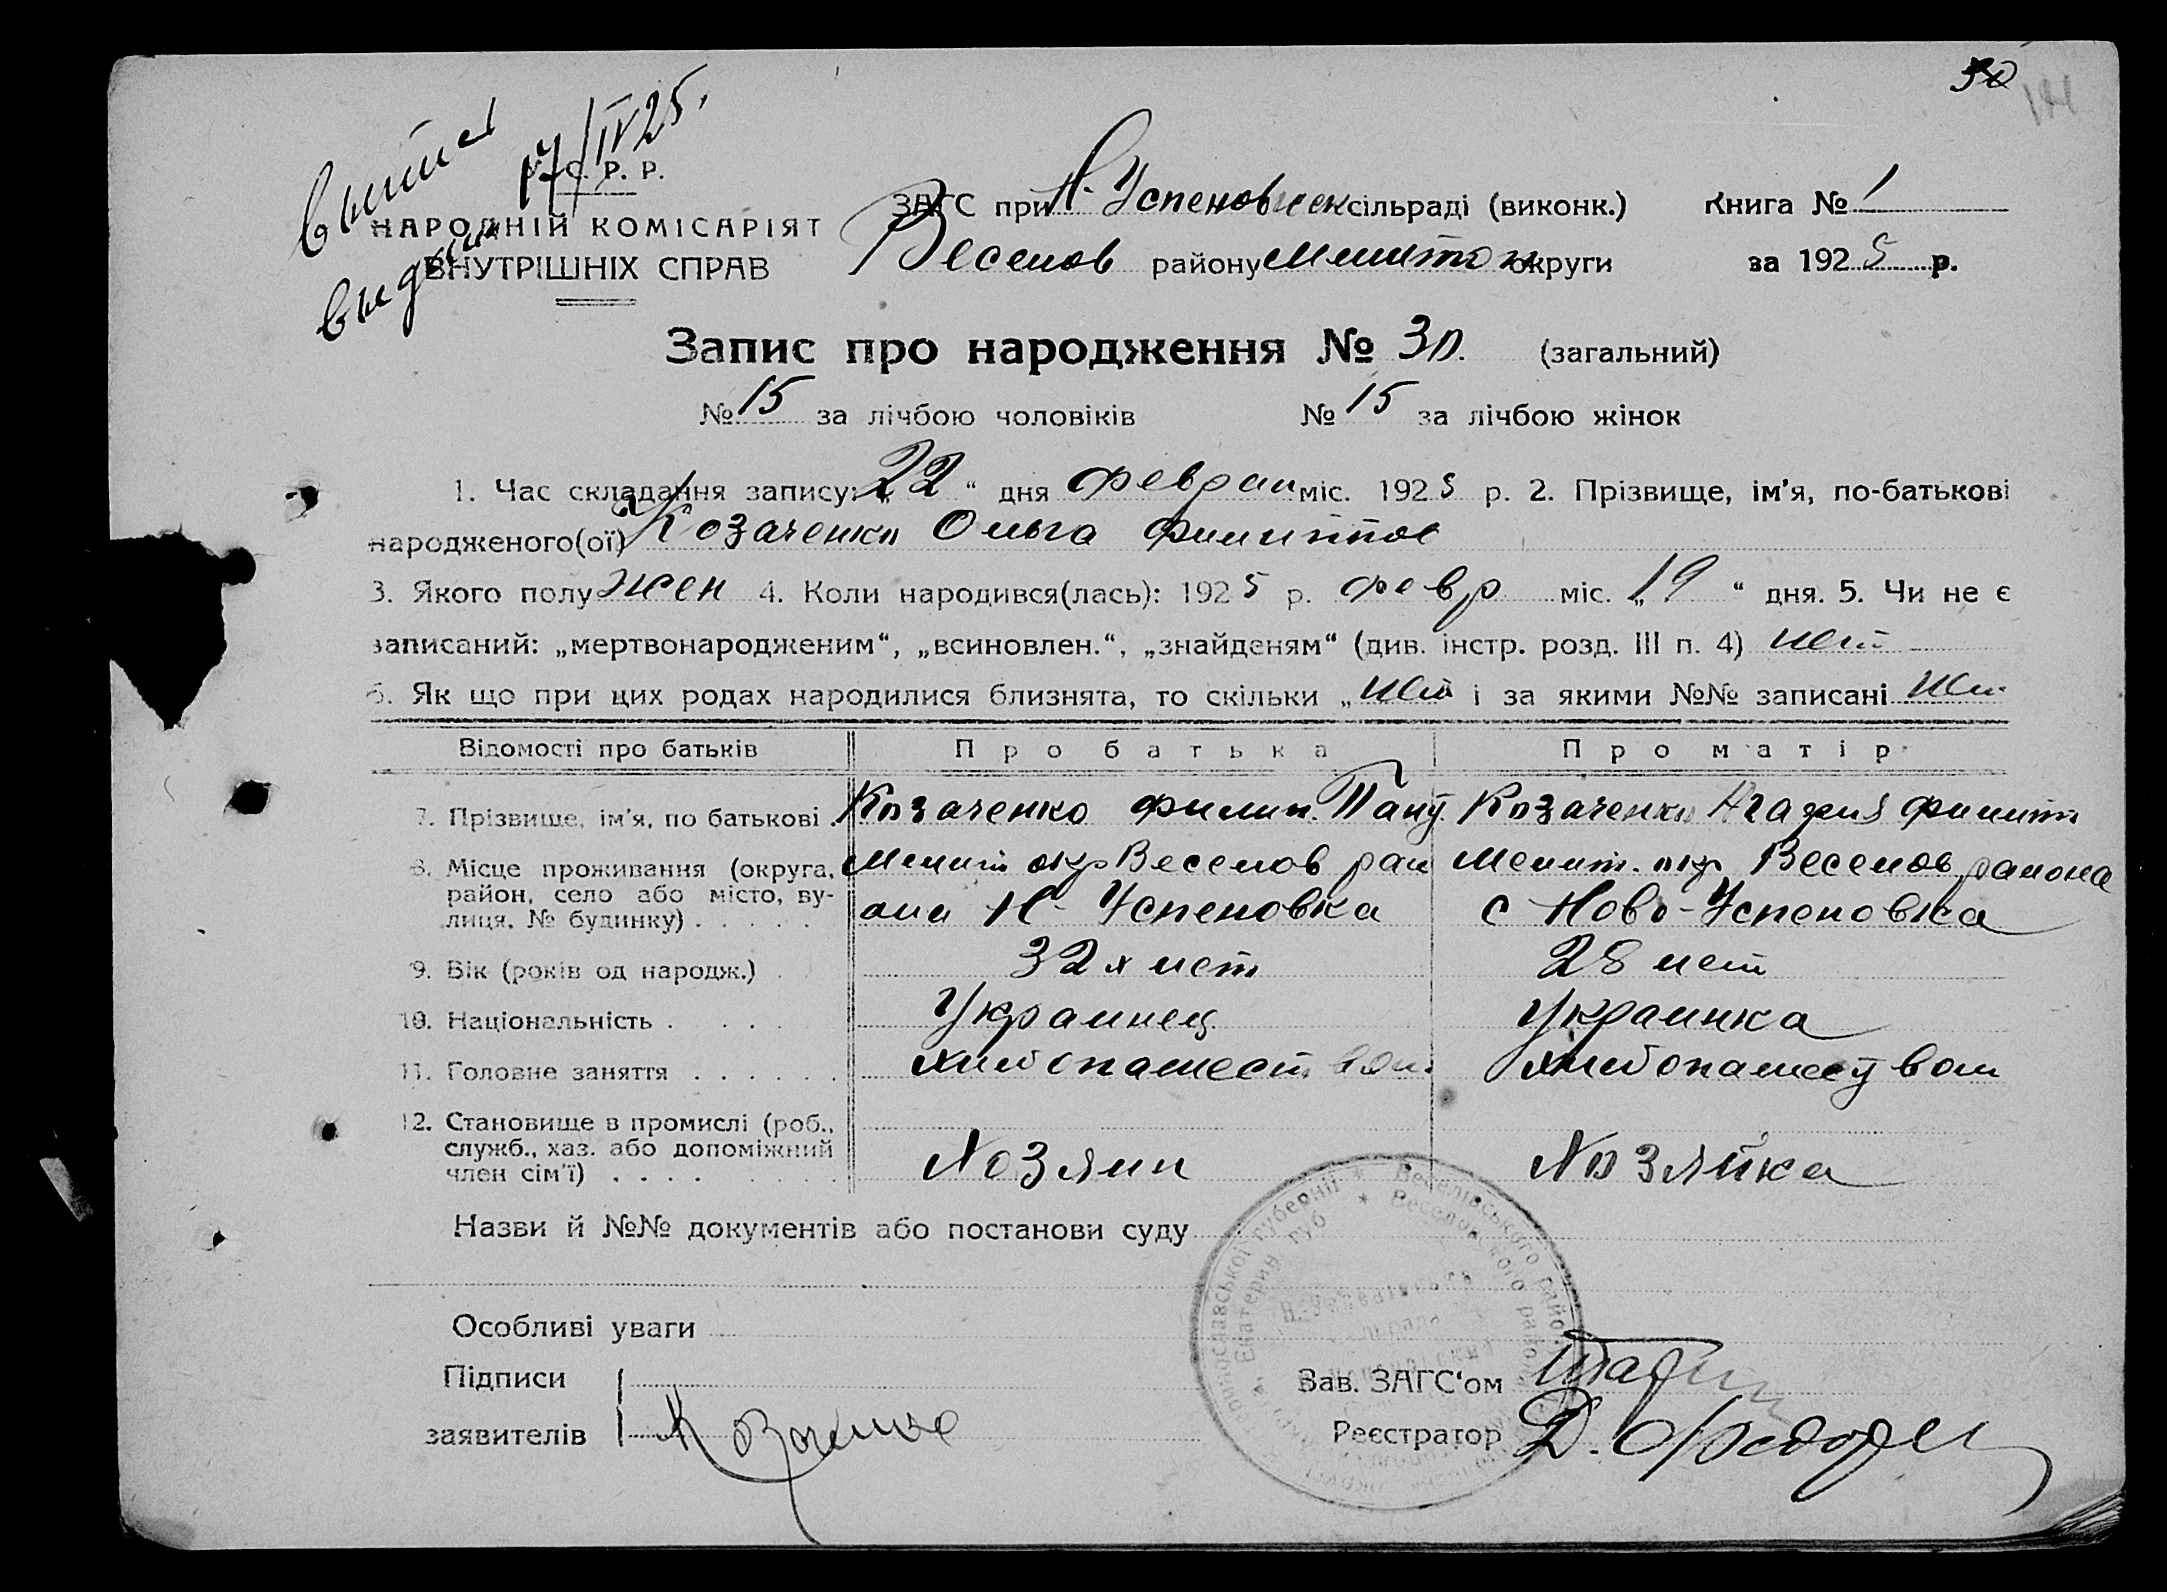 30
выпись
выдана
17/IV 25.
С. Р. Р.
НАРОДНІЙ КОМІСАРІЯТ
ВНУТРІШНІХ СПРАВ
ЗАГС при Н-Успеновск сільраді (виконк.) Книга № 1
Веселов району Мелитоп округи за 1925 р.
Запис про народження № 30. (загальний)
№ 15 за лічбою чоловіків № 15 за лічбою жінок
1. Час складання запису: „22“ дня Феврал міс. 1925 р. 2. Прізвище, ім'я, по-батькові
народженого(ої) Козаченко Ольга Филиппов
3. Якого полу жен 4. Коли народився(лась): 1925 р. февр міс. „19“ дня. 5. Чи не є
записаний: „мертвонародженим“, „всиновлен.“, „знайденям“ (див. інстр. розд. III п. 4) нет
6. Як що при цих родах народилися близнята, то скільки „нет і за якими №№ записані нет
Відомості про батьків Про батька Про матір
7. Прізвище, ім'я, по батькові . Козаченко Филип. Козаченко Агафия Филип
8. Місце проживання (округа, Мелит окр Веселов рай Мелит. окр Веселов района
район, село або місто, ву- она Н-Успеновка с Ново-Успеновка
лиця, № будинку) . . . . .
9. Вік (років од народж.) . 32х лет 28 лет
10. Національність . . . . Украинец Украинка
11. Головне заняття . . . . . . хлебопашеством хлебопашеством
12. Становище в промислі (роб.,
служб., хаз. або допоміжний Хозяин Хозяйка
член сім'ї) . . . . . . . .
Назви й №№ документів або постанови суду
Особливі уваги
Підписи Зав. ЗАГС'ом
заявителів Козаченко Реєстратор Д.
Веселівського Райо
Веселовского района
Екатерин губ